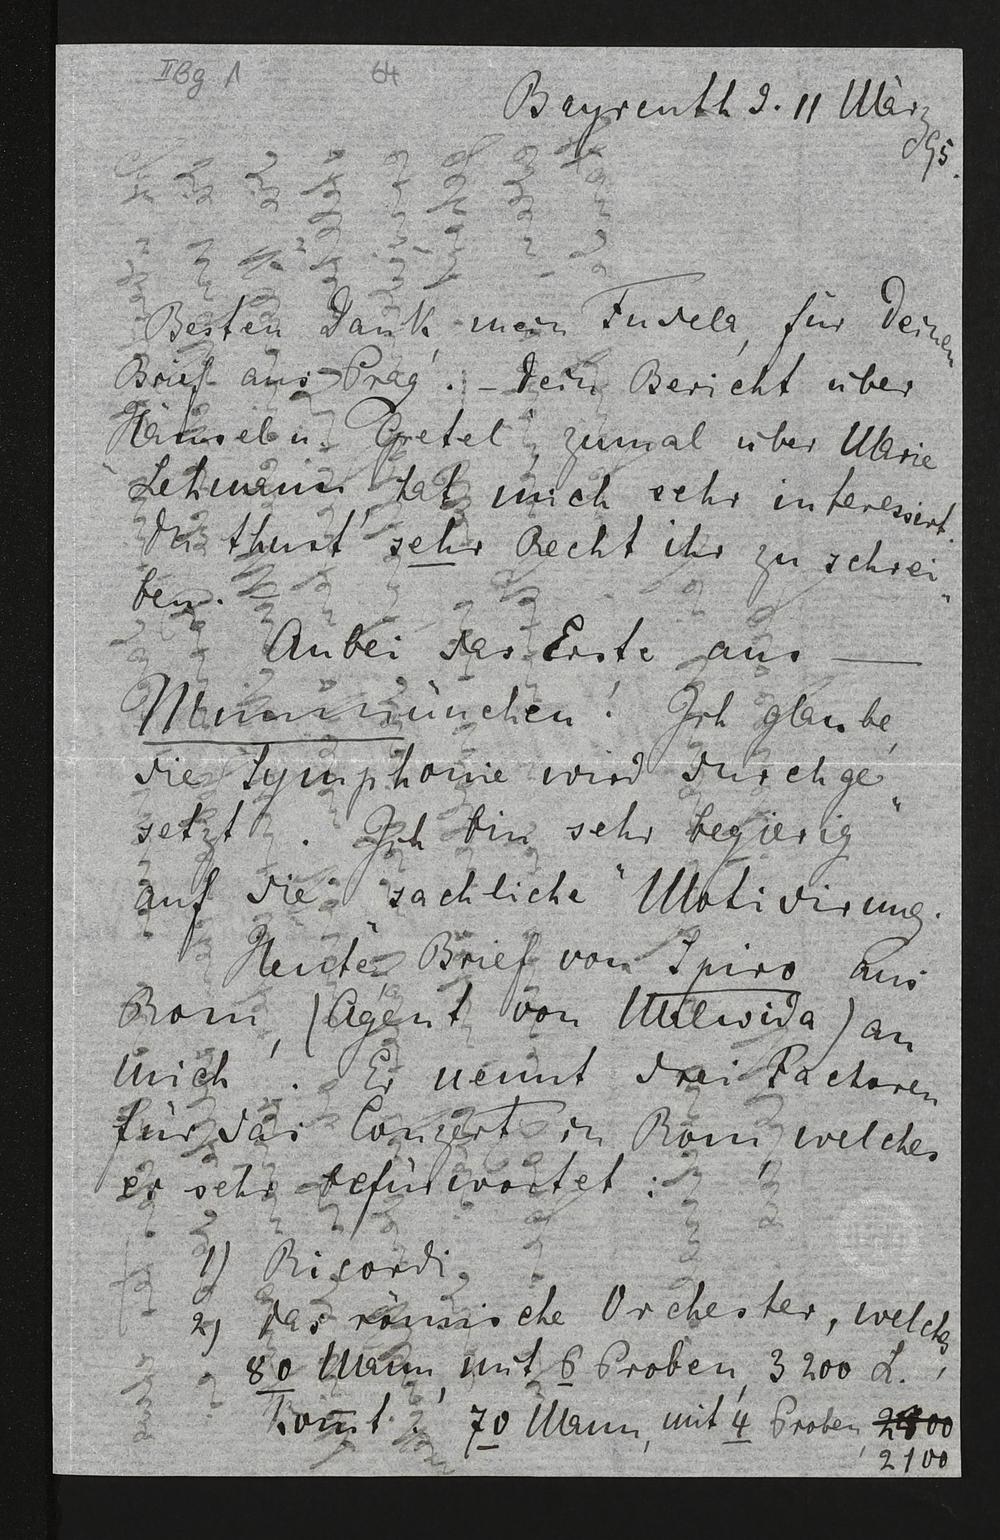 IIBg 1 64
Bayreuth d. 11 März
95.
Besten Dank, mein Fidela, für Deinen
Brief aus Prag. – Dein Bericht über
Hänsel u. Gretel, zumal über Marie
Lehmann hat mich sehr interessirt.
Du thust sehr Recht ihr zu schrei"
ben. –
Anbei das Erste aus —
Münnnnünchen! Ich glaube,
die Symphonie wird durchge"
setzt. Ich bin sehr begierig
auf die "sachliche" Motivirung.
Heute Brief von Spiro aus
Rom, (Agent von Malwida) an
mich. Er nennt drei Factoren
für das Conzert in Rom, welches
er sehr befürwortet:
1) Ricordi
2) das römische Orchester, welches,
80 Mann, mit 6 Proben, 3200 L.
kommt. 70 Mann, mit 4 Proben,
2100